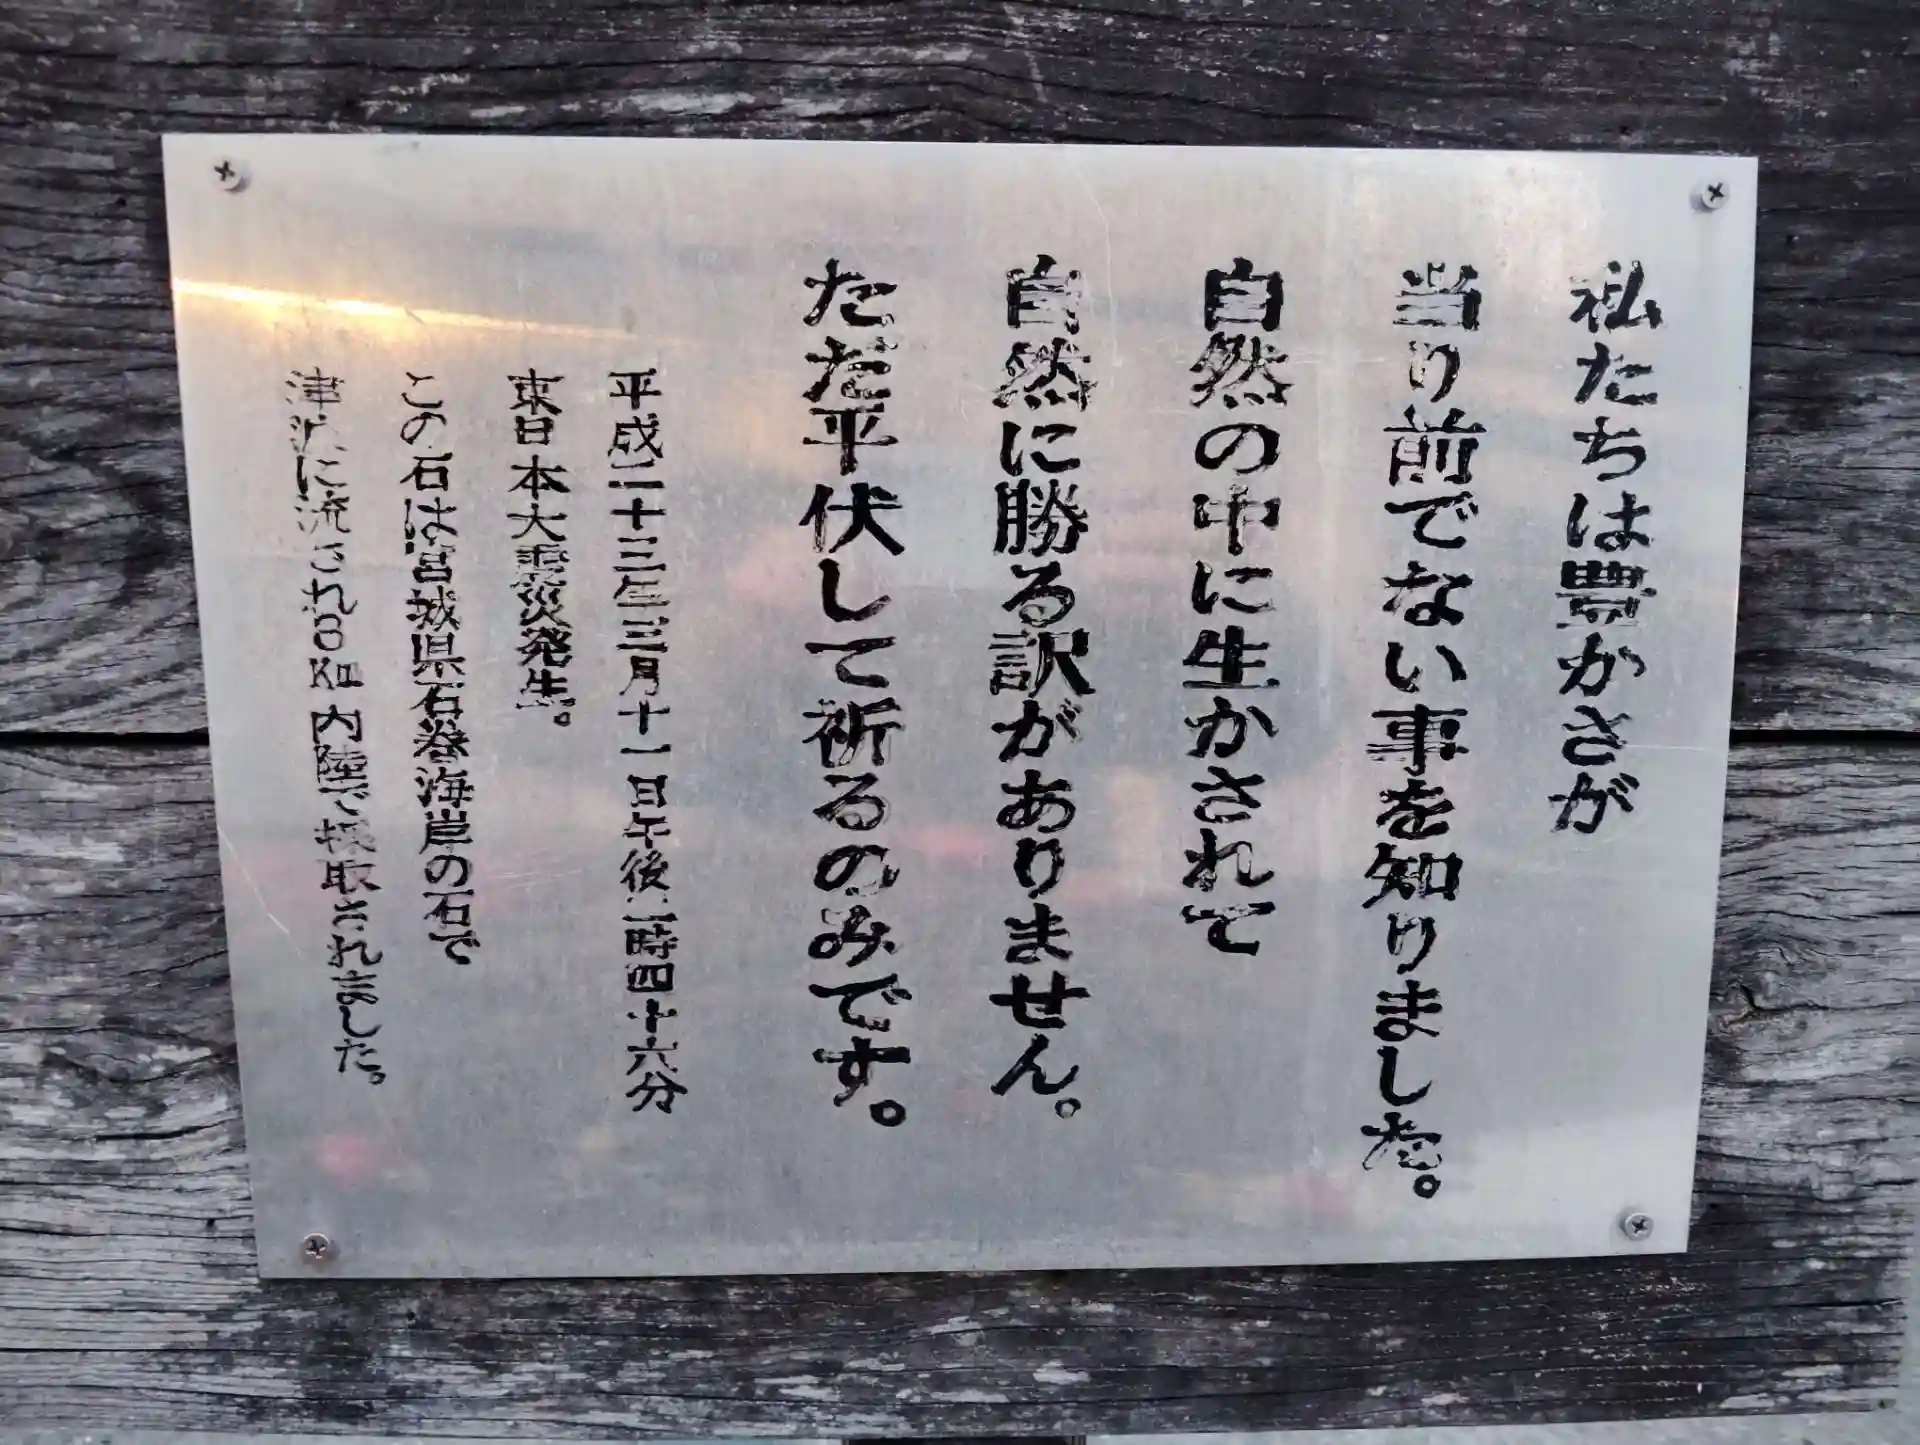 私たちは豊かさが
当り前でない事を知りました。
自然の中に生かされて
自然に勝る訳がありません。
ただ平伏して祈るのみです。
平成二十三年三月十一日午後二時四十六分
東日本大震災発生。
この石は宮城県石巻海岸の石で
津波に流され8㎞内陸で採取されました。